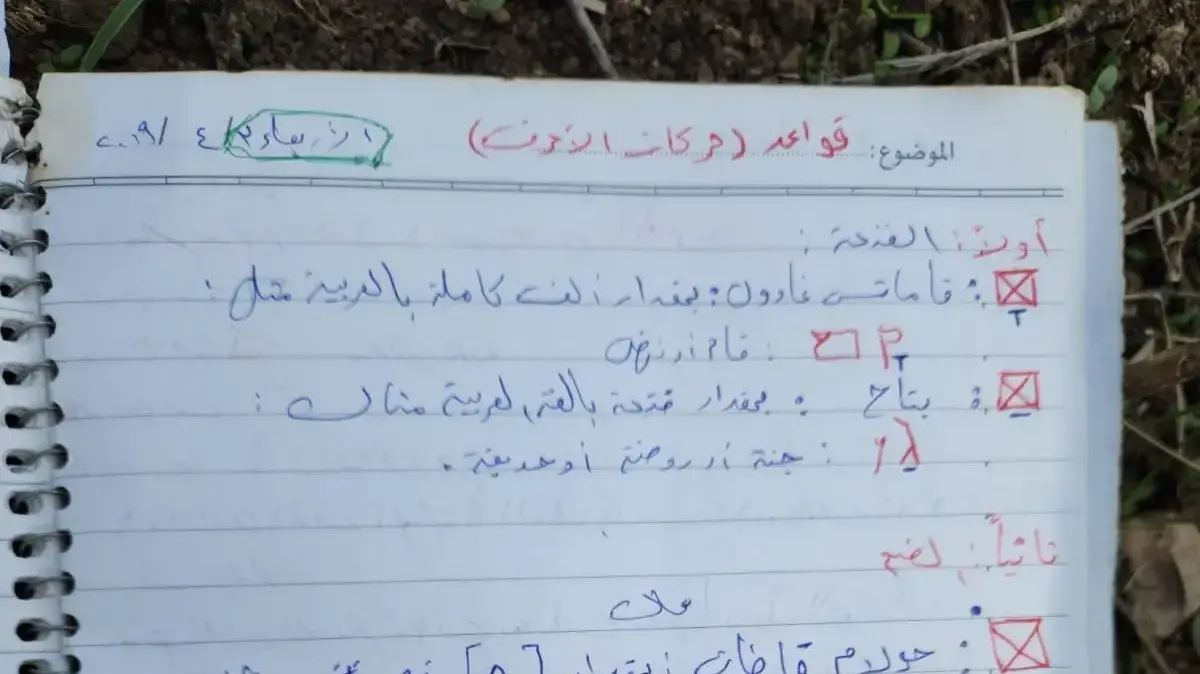 الموضوع: قواعد (حركات الأحرف) الأربعاء ٤ / ٢٠١٩
أولاً: الفتحة:
: قاماتس غادول: بمقدار ألف كاملة بالعربية مثل:
קם : قام أو نهض
: بتاح : بمقدار فتحة بالعربية مثال:
גן : جنة أو روضة أو حديقة.
ثانياً: الضم
: حولام قاطان بمقدار